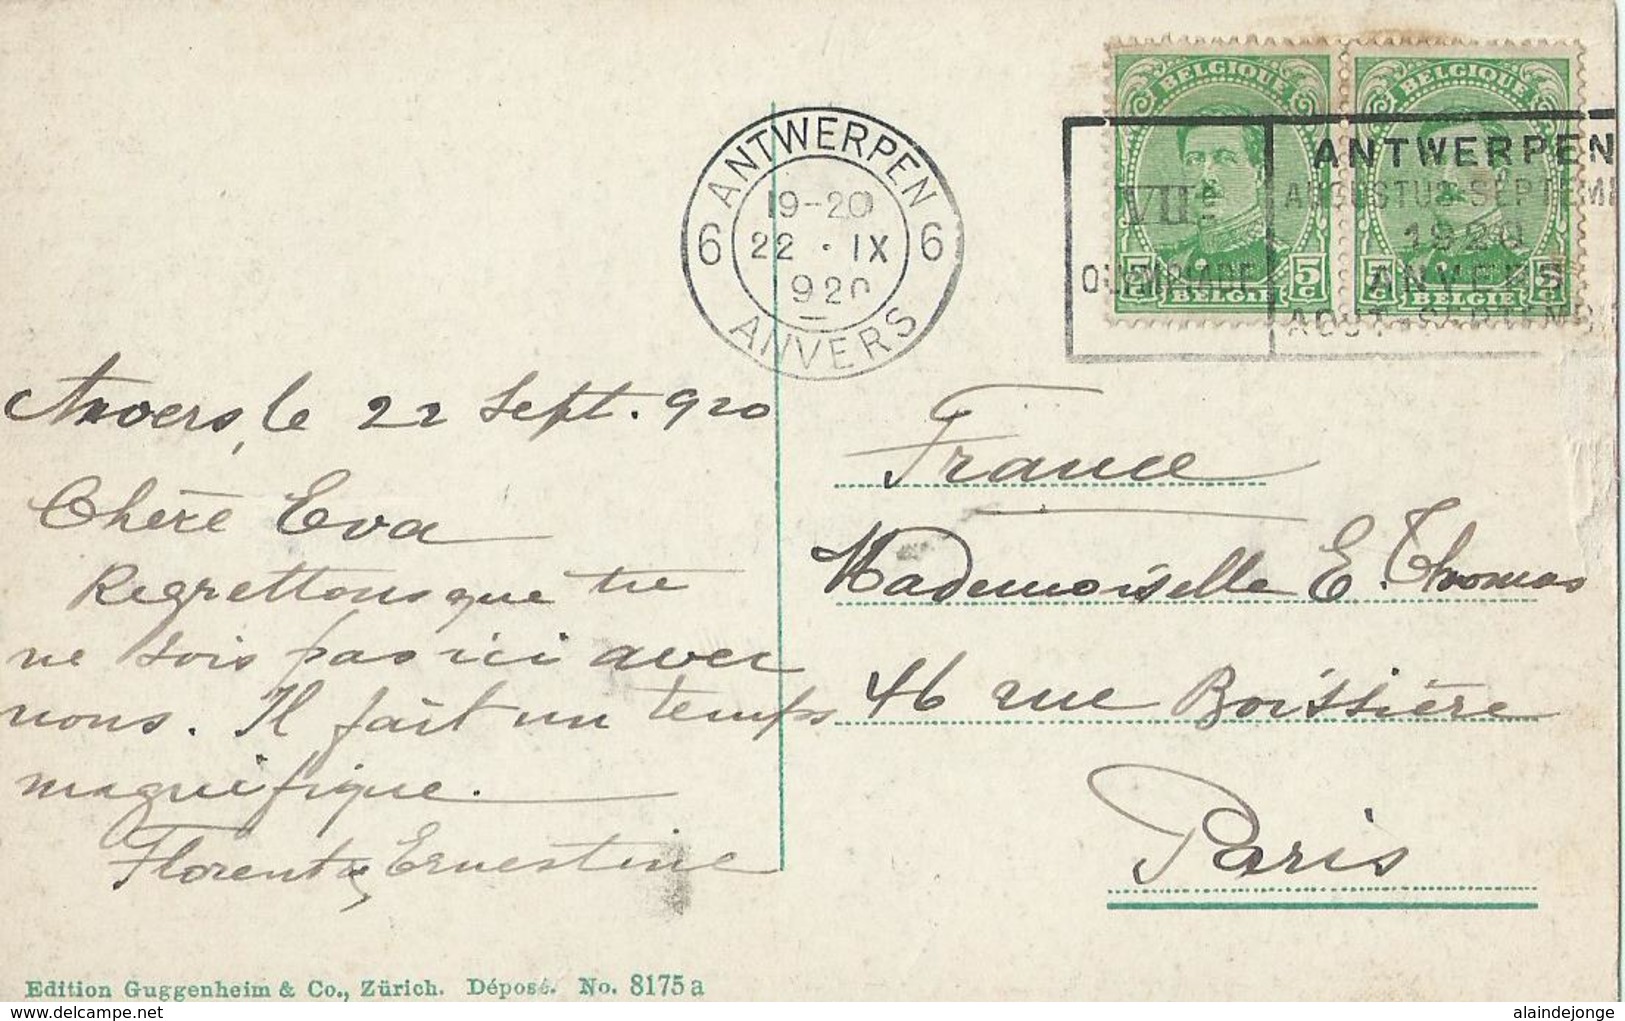 BELGIQUE BELGIQUE
5c 5c 5c 5c
BELGIË BELGIE
ANTWERPEN
6 6
19-20
22 · IX
920
ANVERS
VIIe
OLYMPIADE
ANTWERPEN
AUGUSTUS-SEPTEMB
1920
ANVERS
AOUT-SEPTEMB
Anvers, le 22 Sept. 920
Chère Eva
Regrettons que tu
ne sois pas ici avec
nous. Il fait un temps
magnifique.
Florent & Ernestine
France
Mademoiselle E. Thomas
46 rue Boissière
Paris
Edition Guggenheim & Co., Zürich. Déposé. No. 8175a
www.delcampe.net
alaindejonge